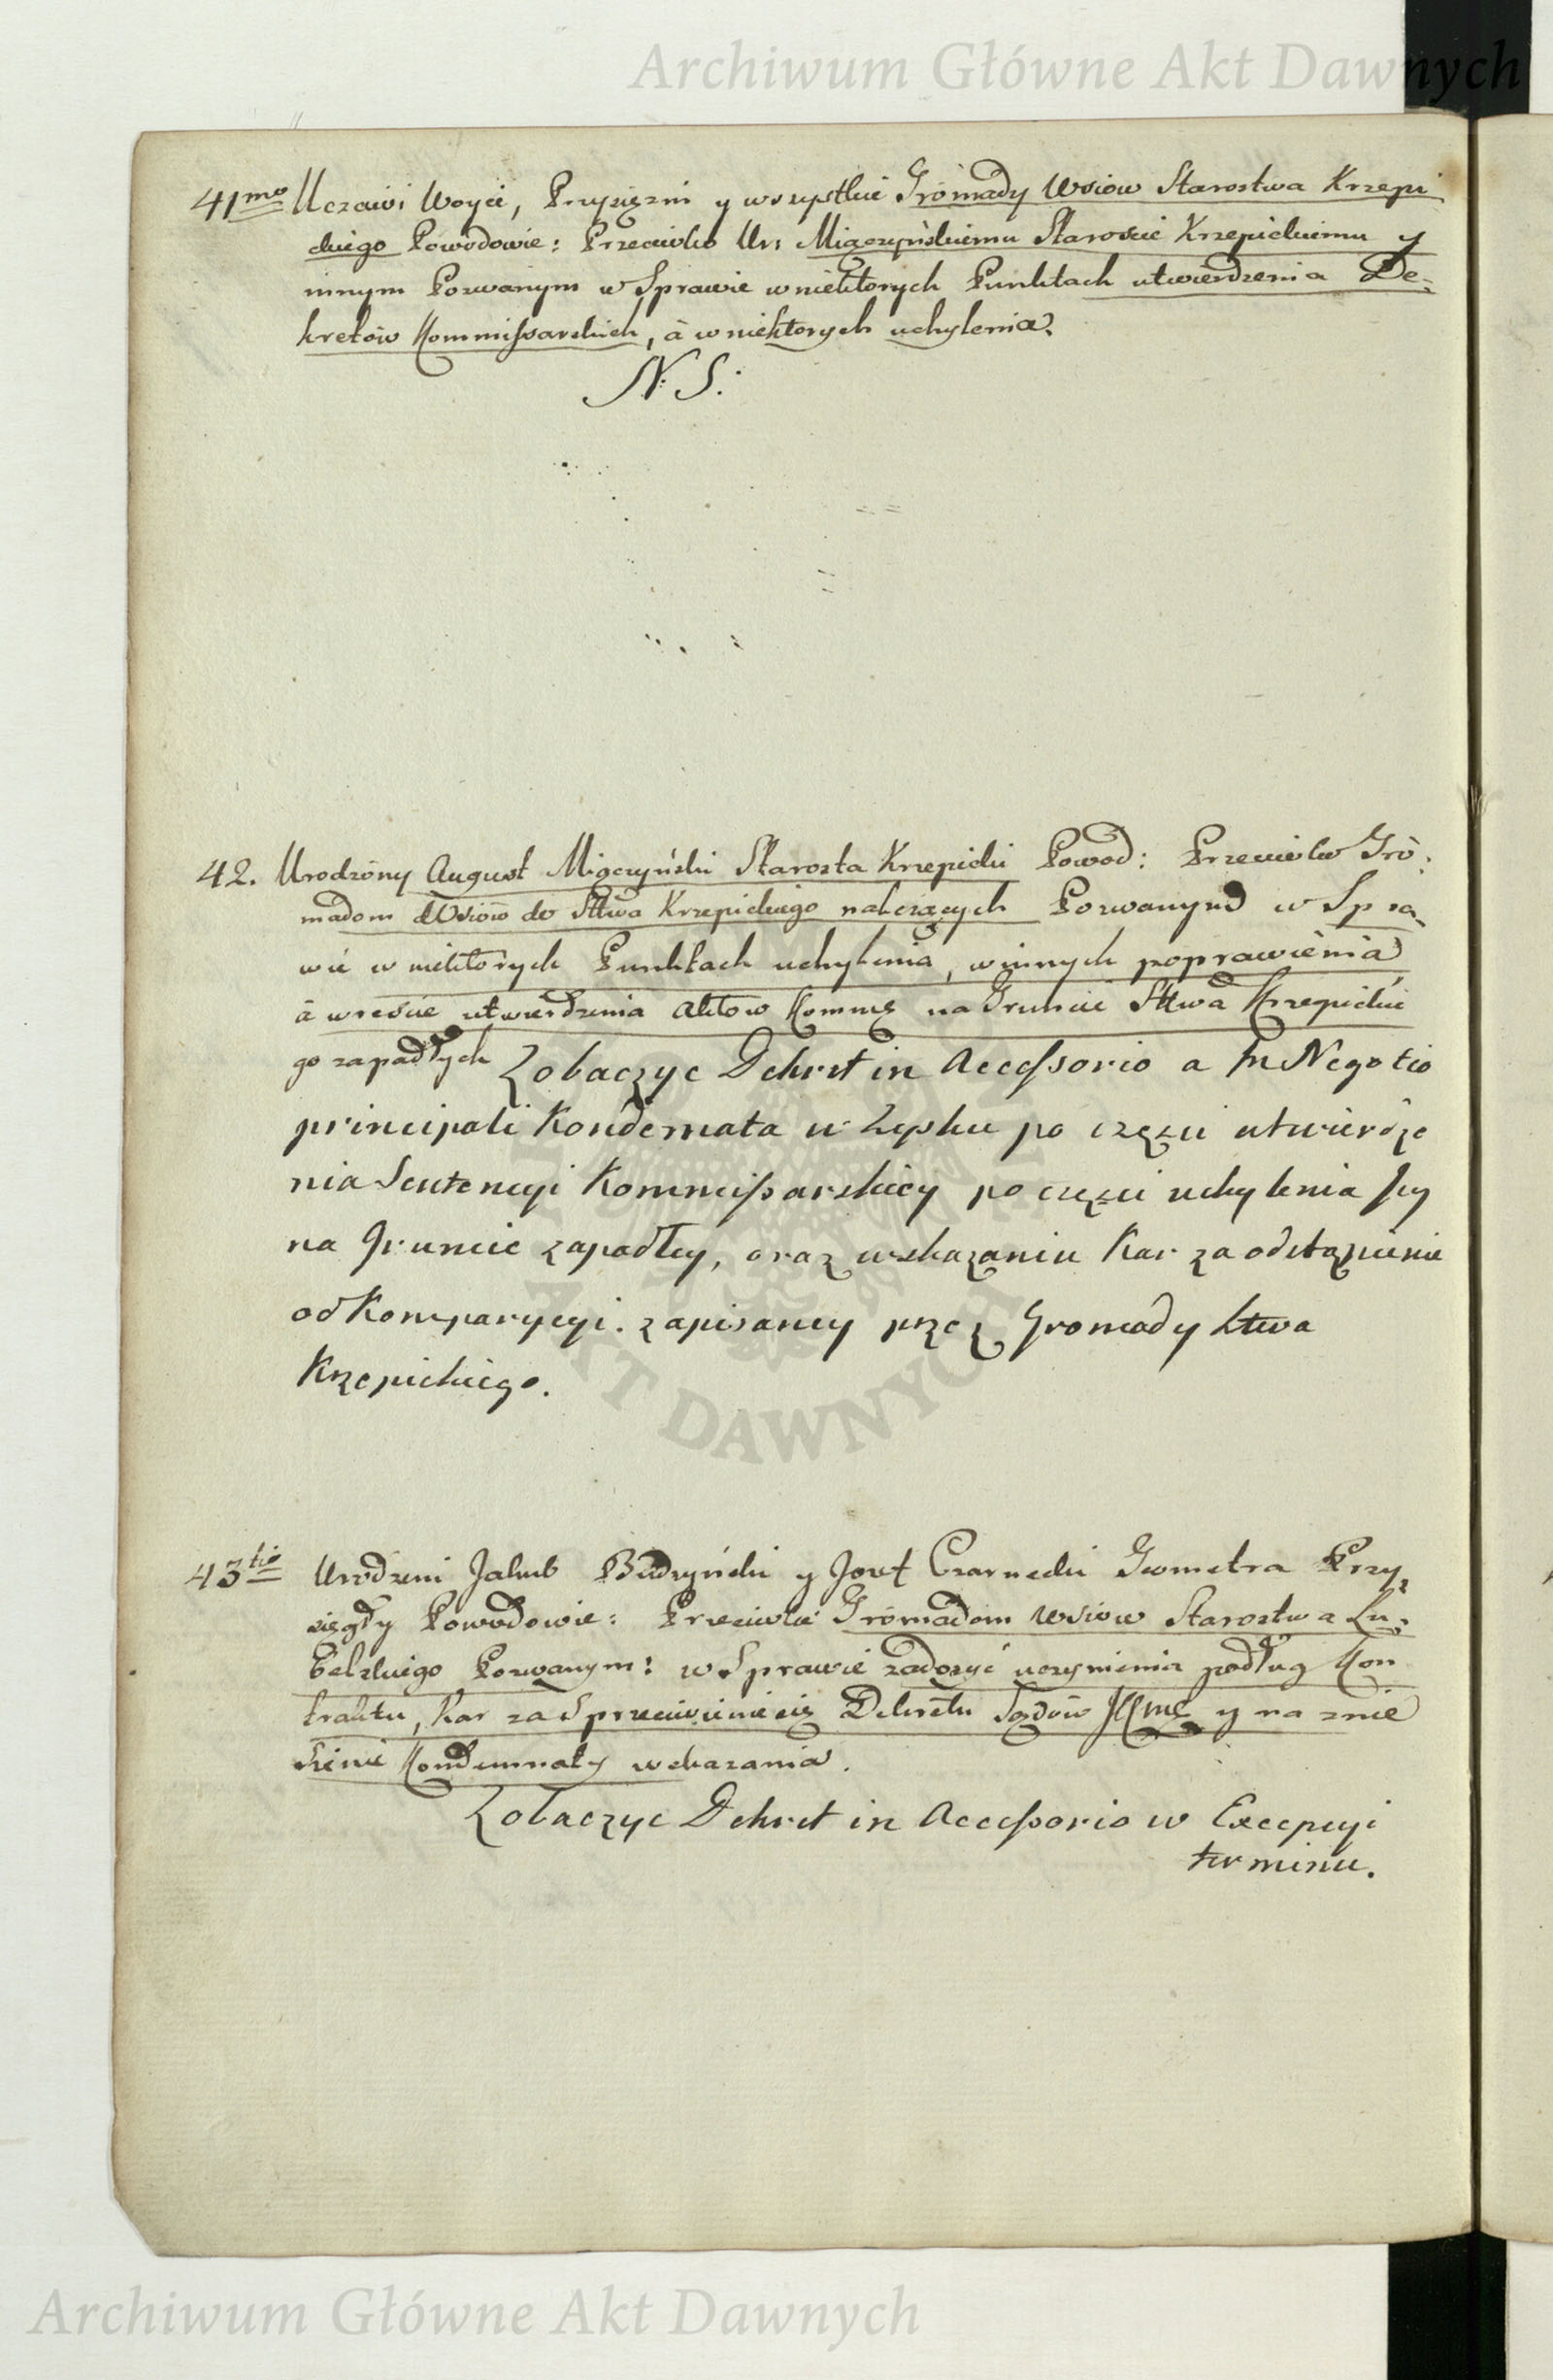 Archiwum Główne Akt Dawnych
41mo Uczciwi Woyci, Przysięzni y wszystkie Gromady Wsiow Starostwa Krzepi
ckiego Powodowie: Przeciwko Ur: Miączyńskiemu Staroscie Krzepickiemu y
innym Pozwanym w Sprawie w niektorych Punktach utwierdzenia De-
kretów Kommissarskich, à w niektorych uchylenia.
N. S:
42. Urodzony August Miączyński Starosta Krzepicki Powod: Przeciwko Gro-
madom Wsiow do Sttwa Krzepickiego należących Pozwanym w Spra-
wie w niektorych Punktach uchylenia, w innych poprawienia
à w rescie utwierdzenia aktow Kommę na Gruncie Sttwa Krzepickie
go zapadłych Zobaczyc Dekret in Accessorio a in Negotio
principali Kondemnata w Zysku po części utwierdze
nia Sentencyi Kommissarskiey po części uchylenia Jey
na Gruncie zapadłey, oraz wskazaniu Kar za odstąpienie
od Komparycyi zapisaney przez Gromady Sttwa
Krzepickiego.
43tio Urodzeni Jakub Budzyński y Jozef Czarnecki Geometra Przy-
sięgły Powodowie: Przeciwko Gromadom Wsiow Starostwa Lu-
belskiego Pozwanym: w Sprawie zadosyć uczynienia podług Kon
traktu, Kar za Sprzeciwienie się Dekretu Sądów JKMę y na znie
sienie Kondemnaty wskazania.
Zobaczyc Dekret in Accessorio w Excepcyi
terminu.
AKT DAWNYCH
Archiwum Główne Akt Dawnych